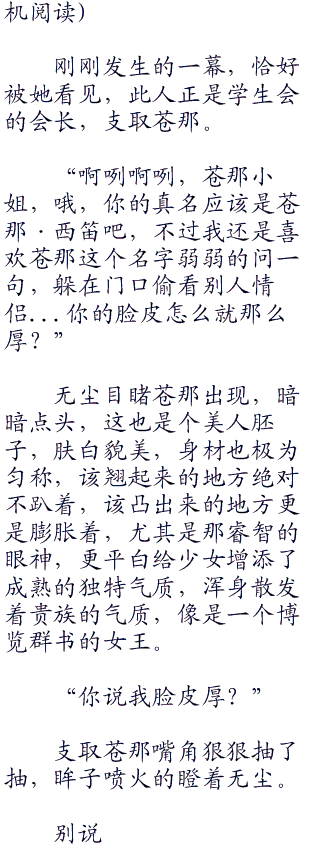 机阅读)
刚刚发生的一幕，恰好
被她看见，此人正是学生会
的会长，支取苍那。
“啊咧啊咧，苍那小
姐，哦，你的真名应该是苍
那·西笛吧，不过我还是喜
欢苍那这个名字弱弱的问一
句，躲在门口偷看别人情
侣...你的脸皮怎么就那么
厚？”
无尘目睹苍那出现，暗
暗点头，这也是个美人胚
子，肤白貌美，身材也极为
匀称，该翘起来的地方绝对
不趴着，该凸出来的地方更
是膨胀着，尤其是那睿智的
眼神，更平白给少女增添了
成熟的独特气质，浑身散发
着贵族的气质，像是一个博
览群书的女王。
“你说我脸皮厚？”
支取苍那嘴角狠狠抽了
抽，眸子喷火的瞪着无尘。
别说